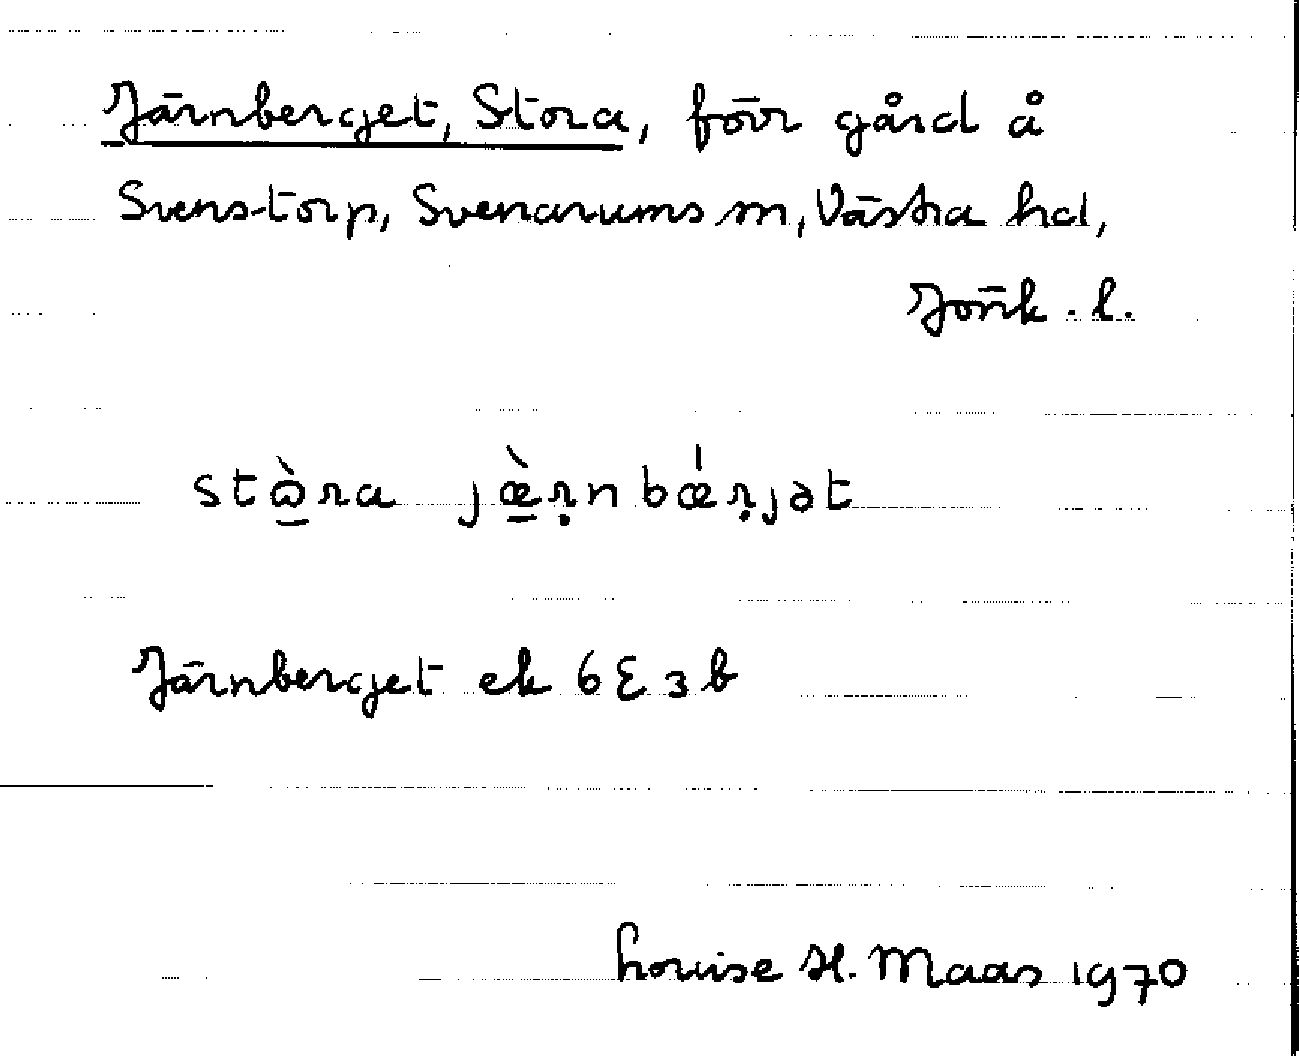 Järnberget, Stora, förr gård å
Svenstorp, Svenarums sn, Västra hd,
Jönk. l.
stɷ̱̀ra jæ̱̀ṛnbǽṛjət
Järnberget ek 6E3b
Louise H. Maas 1970